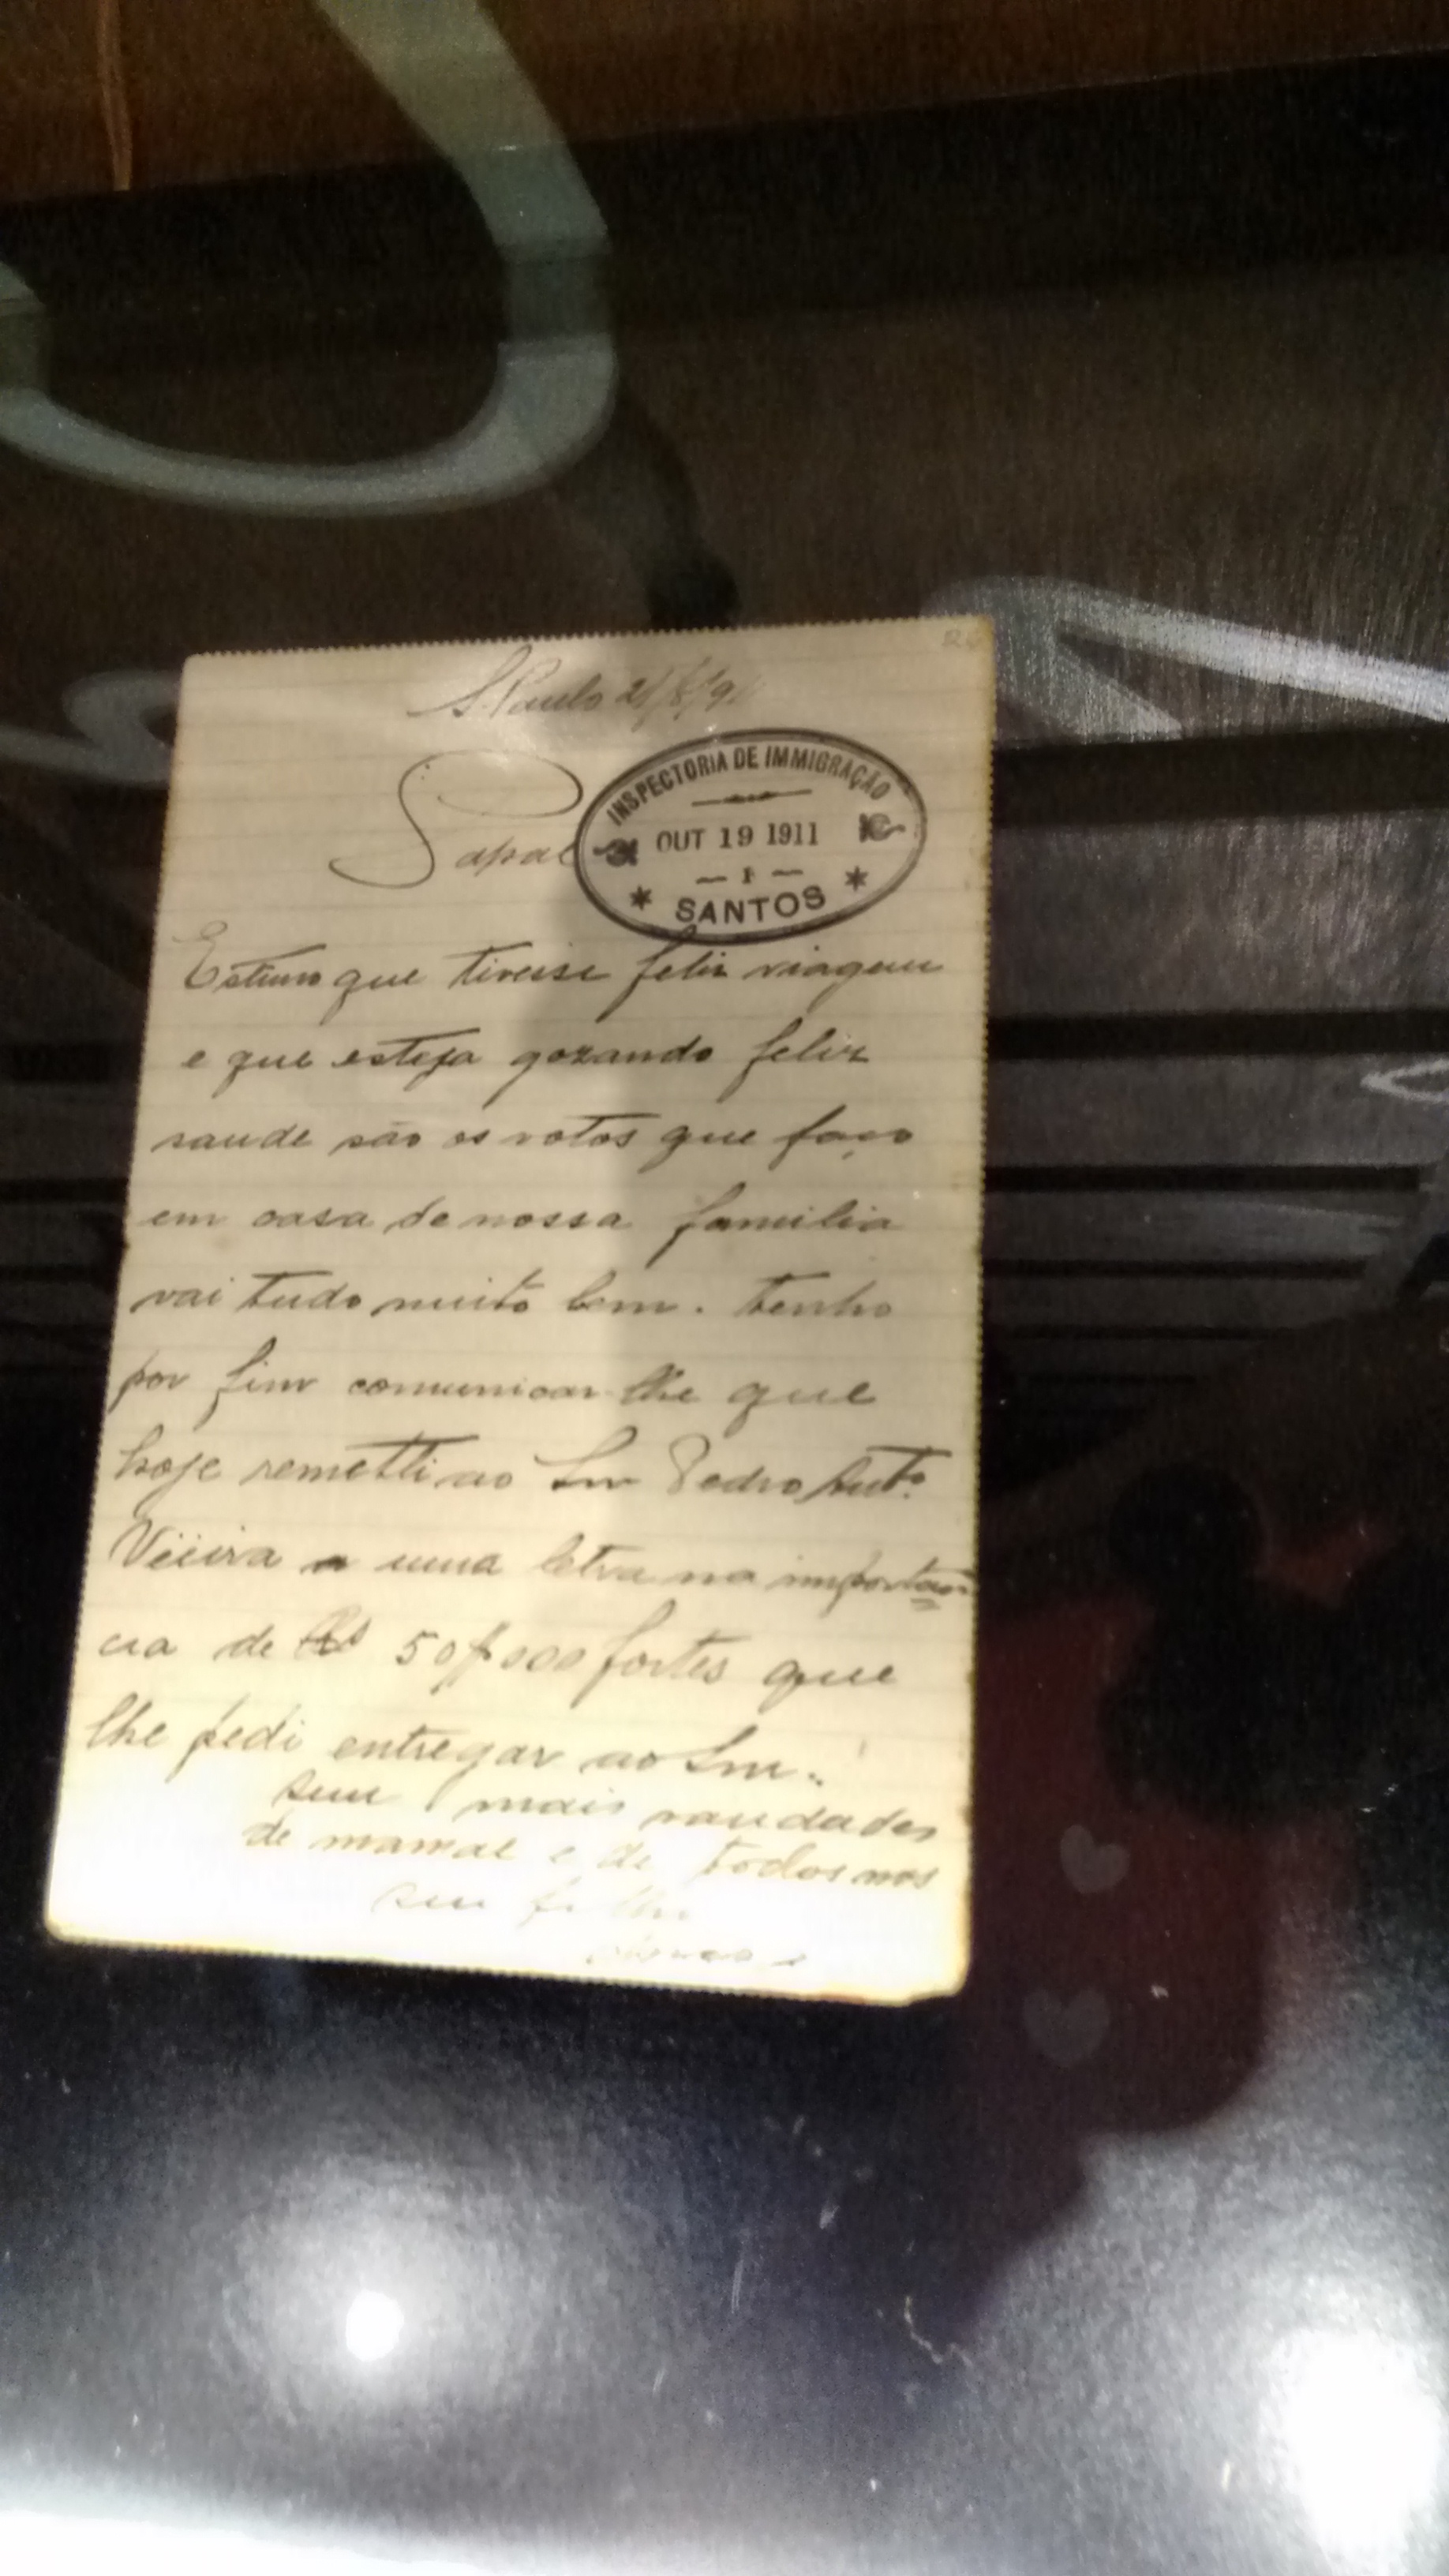 S. Paulo
Papae
INSPECTORIA DE IMMIGRAÇÃO
OUT 19 1911
SANTOS
Estimo que tivesse feliz viagem
e que esteja gozando feliz
saude são os votos que faço
em casa de nossa familia
vai tudo muito bem. tenho
por fim comunicar-lhe que
hoje remetti ao Snr Pedro Anto.
Vieira a uma letra na importan
cia de Rs 50$000 fortes que
lhe pedi entregar ao Snr.
sem mais saudades
de mamae e de todos nos
seu filho